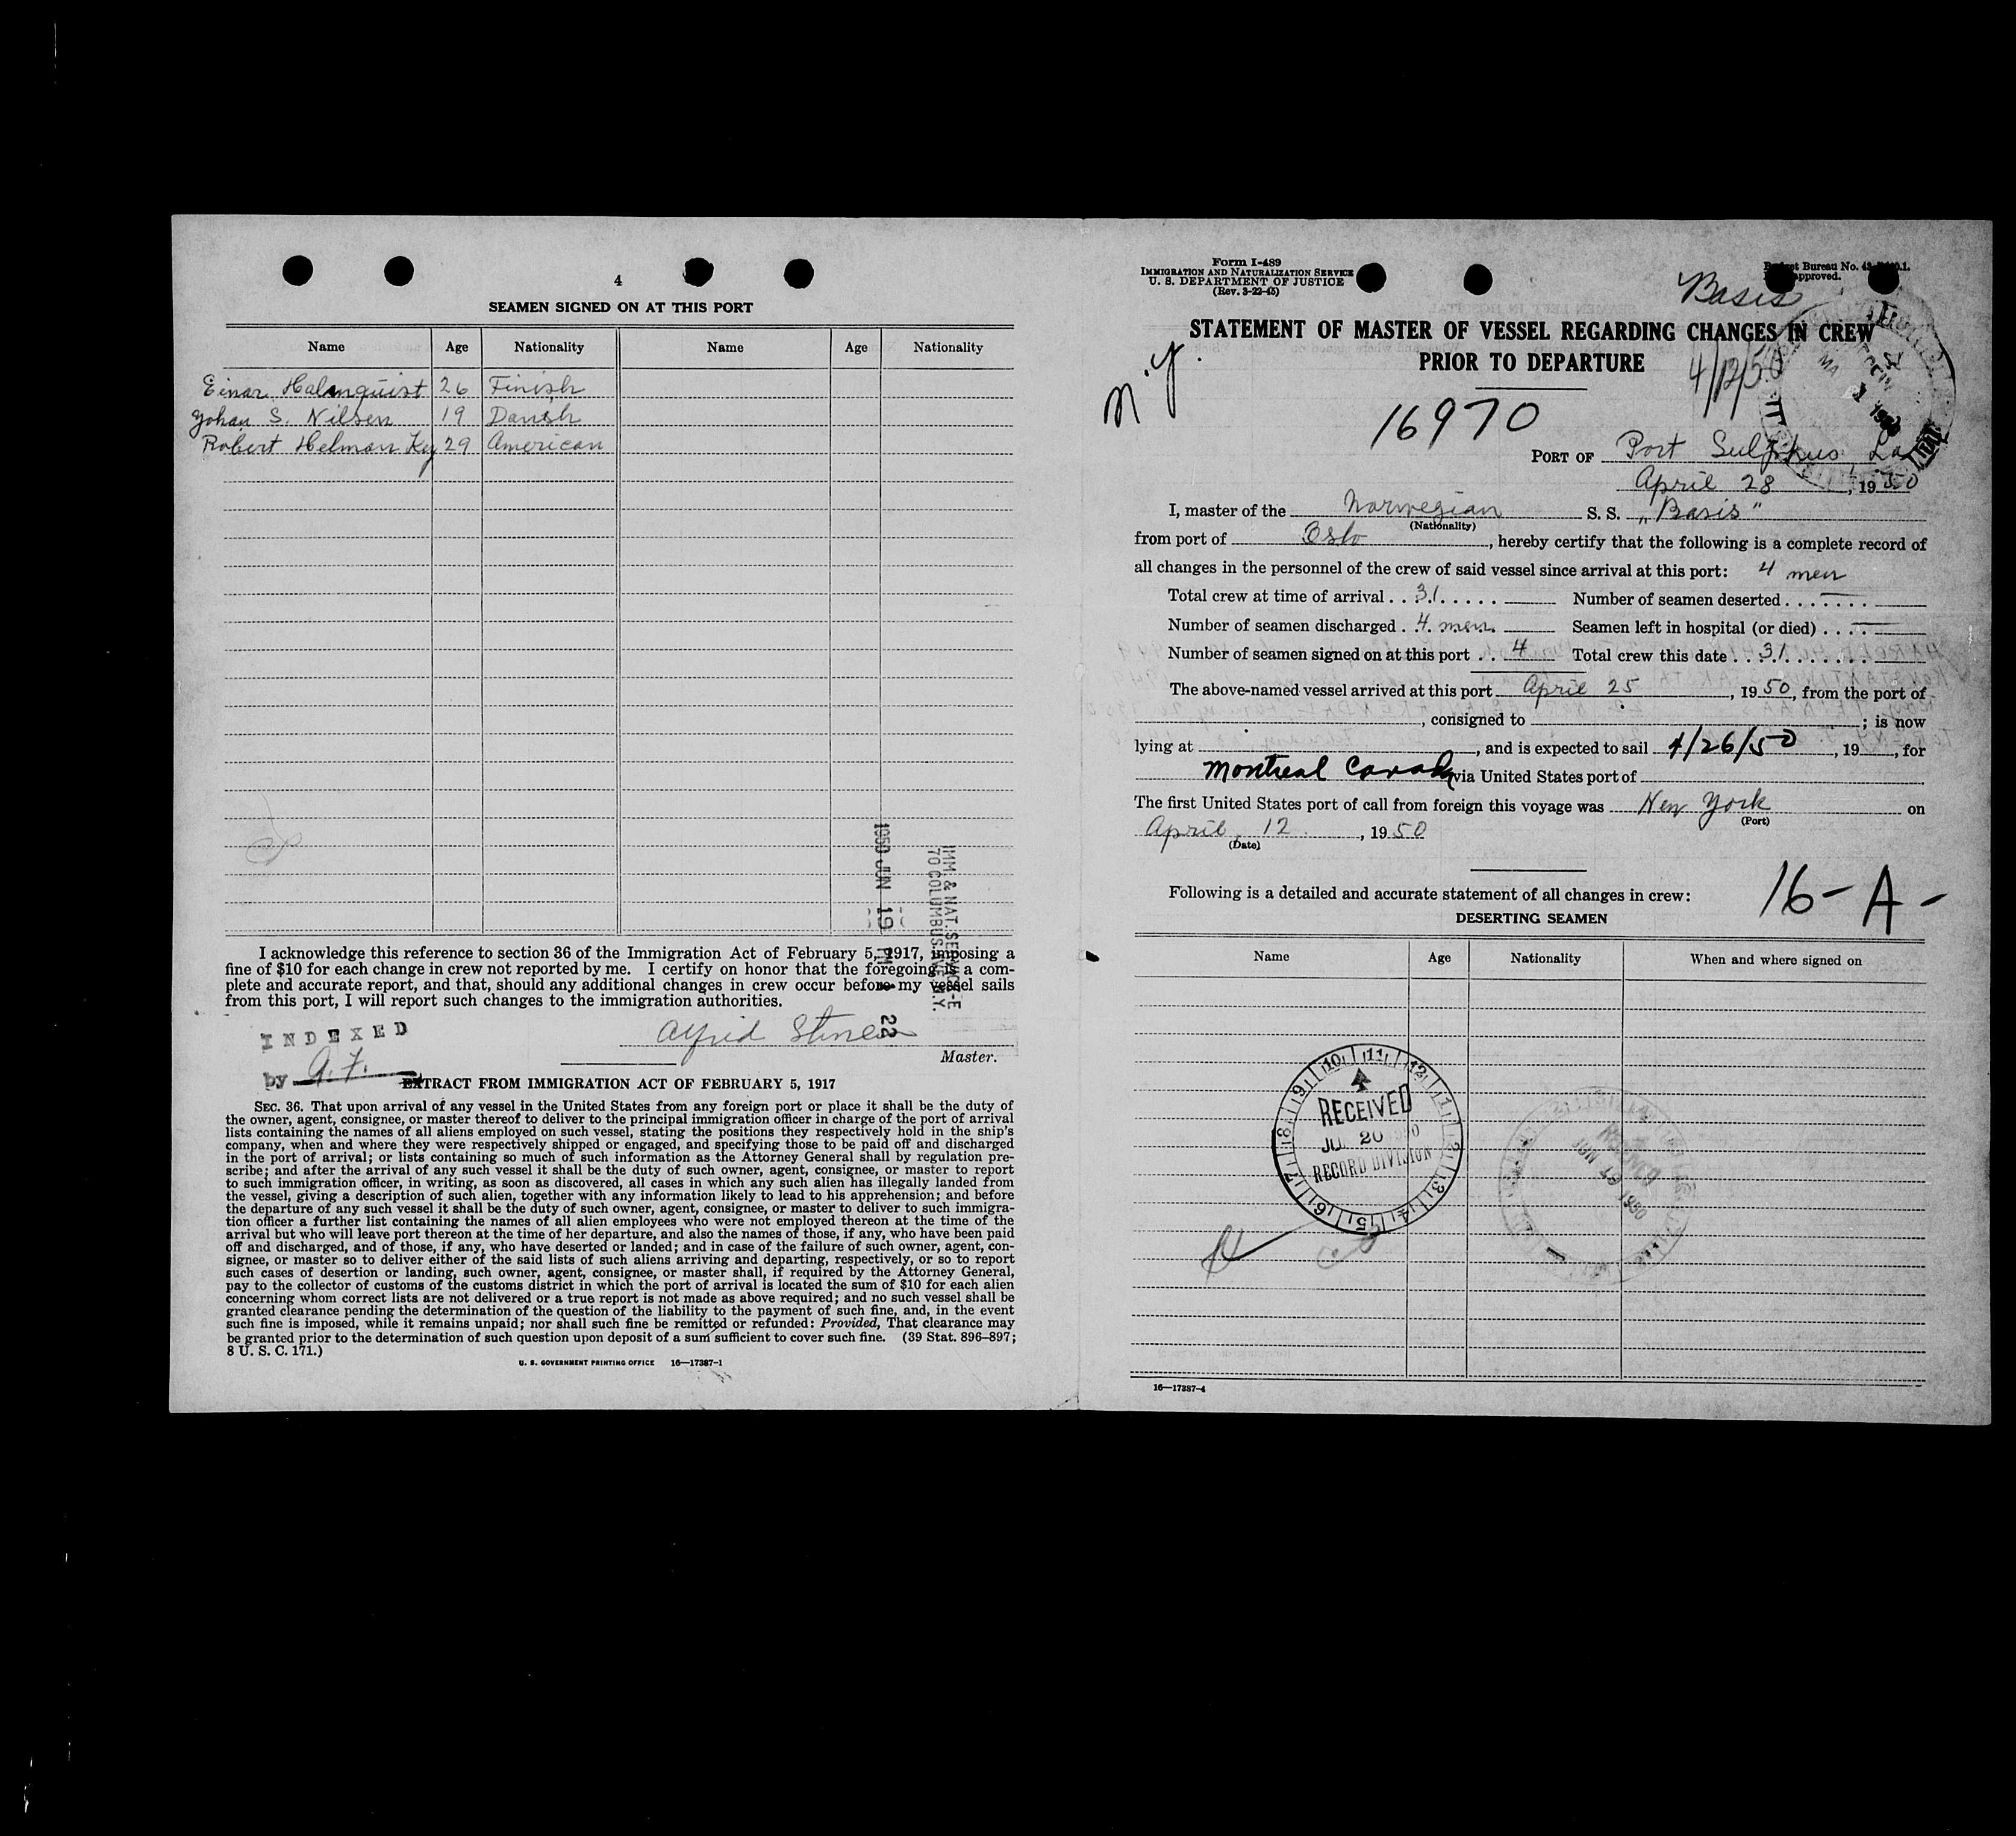 4
SEAMEN SIGNED ON AT THIS PORT
Name Age Nationality Name Age Nationality
Einar Halmquist 26 Finish
Johan S. Nilsen 19 Danish
Robert Helman Key 29 American
I acknowledge this reference to section 36 of the Immigration Act of February 5, 1917, imposing a
fine of $10 for each change in crew not reported by me. I certify on honor that the foregoing is a com-
plete and accurate report, and that, should any additional changes in crew occur before my vessel sails
from this port, I will report such changes to the immigration authorities.
IMM. & NAT. SERVICE
70 COLUMBUS AVE. N.Y.
1950 JUN 19 PM 22
INDEXED
by A. F.
Alfrid
Master.
EXTRACT FROM IMMIGRATION ACT OF FEBRUARY 5, 1917
SEC. 36. That upon arrival of any vessel in the United States from any foreign port or place it shall be the duty of
the owner, agent, consignee, or master thereof to deliver to the principal immigration officer in charge of the port of arrival
lists containing the names of all aliens employed on such vessel, stating the positions they respectively hold in the ship's
company, when and where they were respectively shipped or engaged, and specifying those to be paid off and discharged
in the port of arrival; or lists containing so much of such information as the Attorney General shall by regulation pre-
scribe; and after the arrival of any such vessel it shall be the duty of such owner, agent, consignee, or master to report
to such immigration officer, in writing, as soon as discovered, all cases in which any such alien has illegally landed from
the vessel, giving a description of such alien, together with any information likely to lead to his apprehension; and before
the departure of any such vessel it shall be the duty of such owner, agent, consignee, or master to deliver to such immigra-
tion officer a further list containing the names of all alien employees who were not employed thereon at the time of the
arrival but who will leave port thereon at the time of her departure, and also the names of those, if any, who have been paid
off and discharged, and of those, if any, who have deserted or landed; and in case of the failure of such owner, agent, con-
signee, or master so to deliver either of the said lists of such aliens arriving and departing, respectively, or so to report
such cases of desertion or landing, such owner, agent, consignee, or master shall, if required by the Attorney General,
pay to the collector of customs of the customs district in which the port of arrival is located the sum of $10 for each alien
concerning whom correct lists are not delivered or a true report is not made as above required; and no such vessel shall be
granted clearance pending the determination of the question of the liability to the payment of such fine, and, in the event
such fine is imposed, while it remains unpaid; nor shall such fine be remitted or refunded: Provided, That clearance may
be granted prior to the determination of such question upon deposit of a sum sufficient to cover such fine. (39 Stat. 896–897;
8 U. S. C. 171.)
U. S. GOVERNMENT PRINTING OFFICE 16—17387-1
Form I-489
IMMIGRATION AND NATURALIZATION SERVICE
U. S. DEPARTMENT OF JUSTICE
(Rev. 3-22-45)
Bureau No.
approved.
Basis
STATEMENT OF MASTER OF VESSEL REGARDING CHANGES IN CREW
PRIOR TO DEPARTURE
N.Y.
4/12/50
16970
PORT OF Port Sulphus, La
April 28, 1950
I, master of the Norwegian S. S. „Basis"
(Nationality)
from port of Oslo, hereby certify that the following is a complete record of
all changes in the personnel of the crew of said vessel since arrival at this port: 4 men
Total crew at time of arrival . . 31 . . . . . Number of seamen deserted . . . . . . . —
Number of seamen discharged . . 4 men Seamen left in hospital (or died) . . . . —
Number of seamen signed on at this port . . 4 Total crew this date . . 31 . . . . . . .
The above-named vessel arrived at this port April 25, 1950, from the port of
, consigned to ; is now
lying at , and is expected to sail 4/26/50, 19 , for
Montreal Canada via United States port of
The first United States port of call from foreign this voyage was New York on
(Port)
April, 12., 1950
(Date)
Following is a detailed and accurate statement of all changes in crew:
16-A-
DESERTING SEAMEN
Name Age Nationality When and where signed on
10 11 12 1 2 3 4 5 6 7 8 9
RECEIVED
20
RECORD DIVISION
JUN 19 1950
16—17387-4